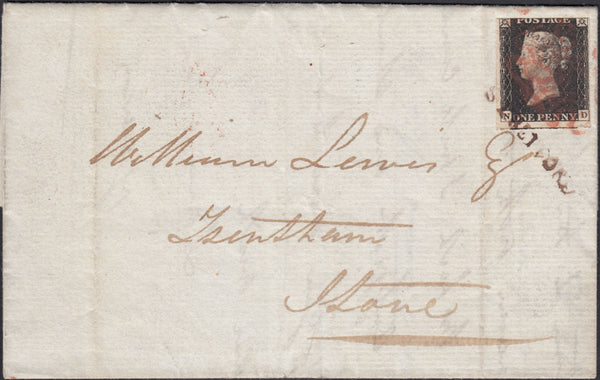 POSTAGE
N ONE PENNY D
William Lewis Esq
Trentham
Stone